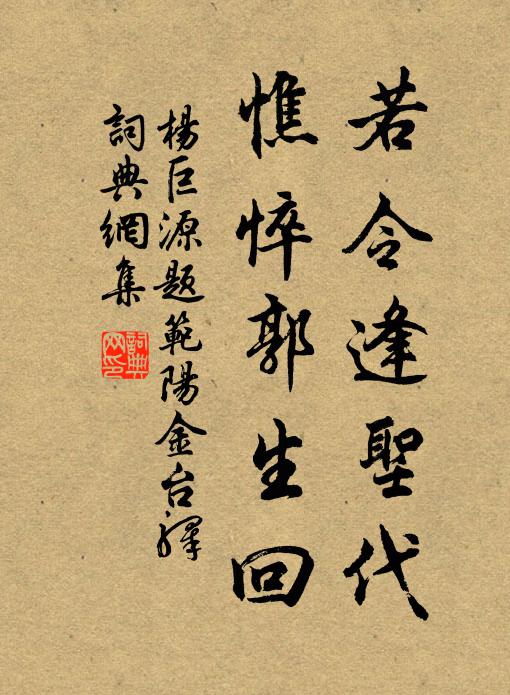 若令逢聖代
憔悴郭生回
楊巨源題範陽金台驛
詞典網集
詞典
网印